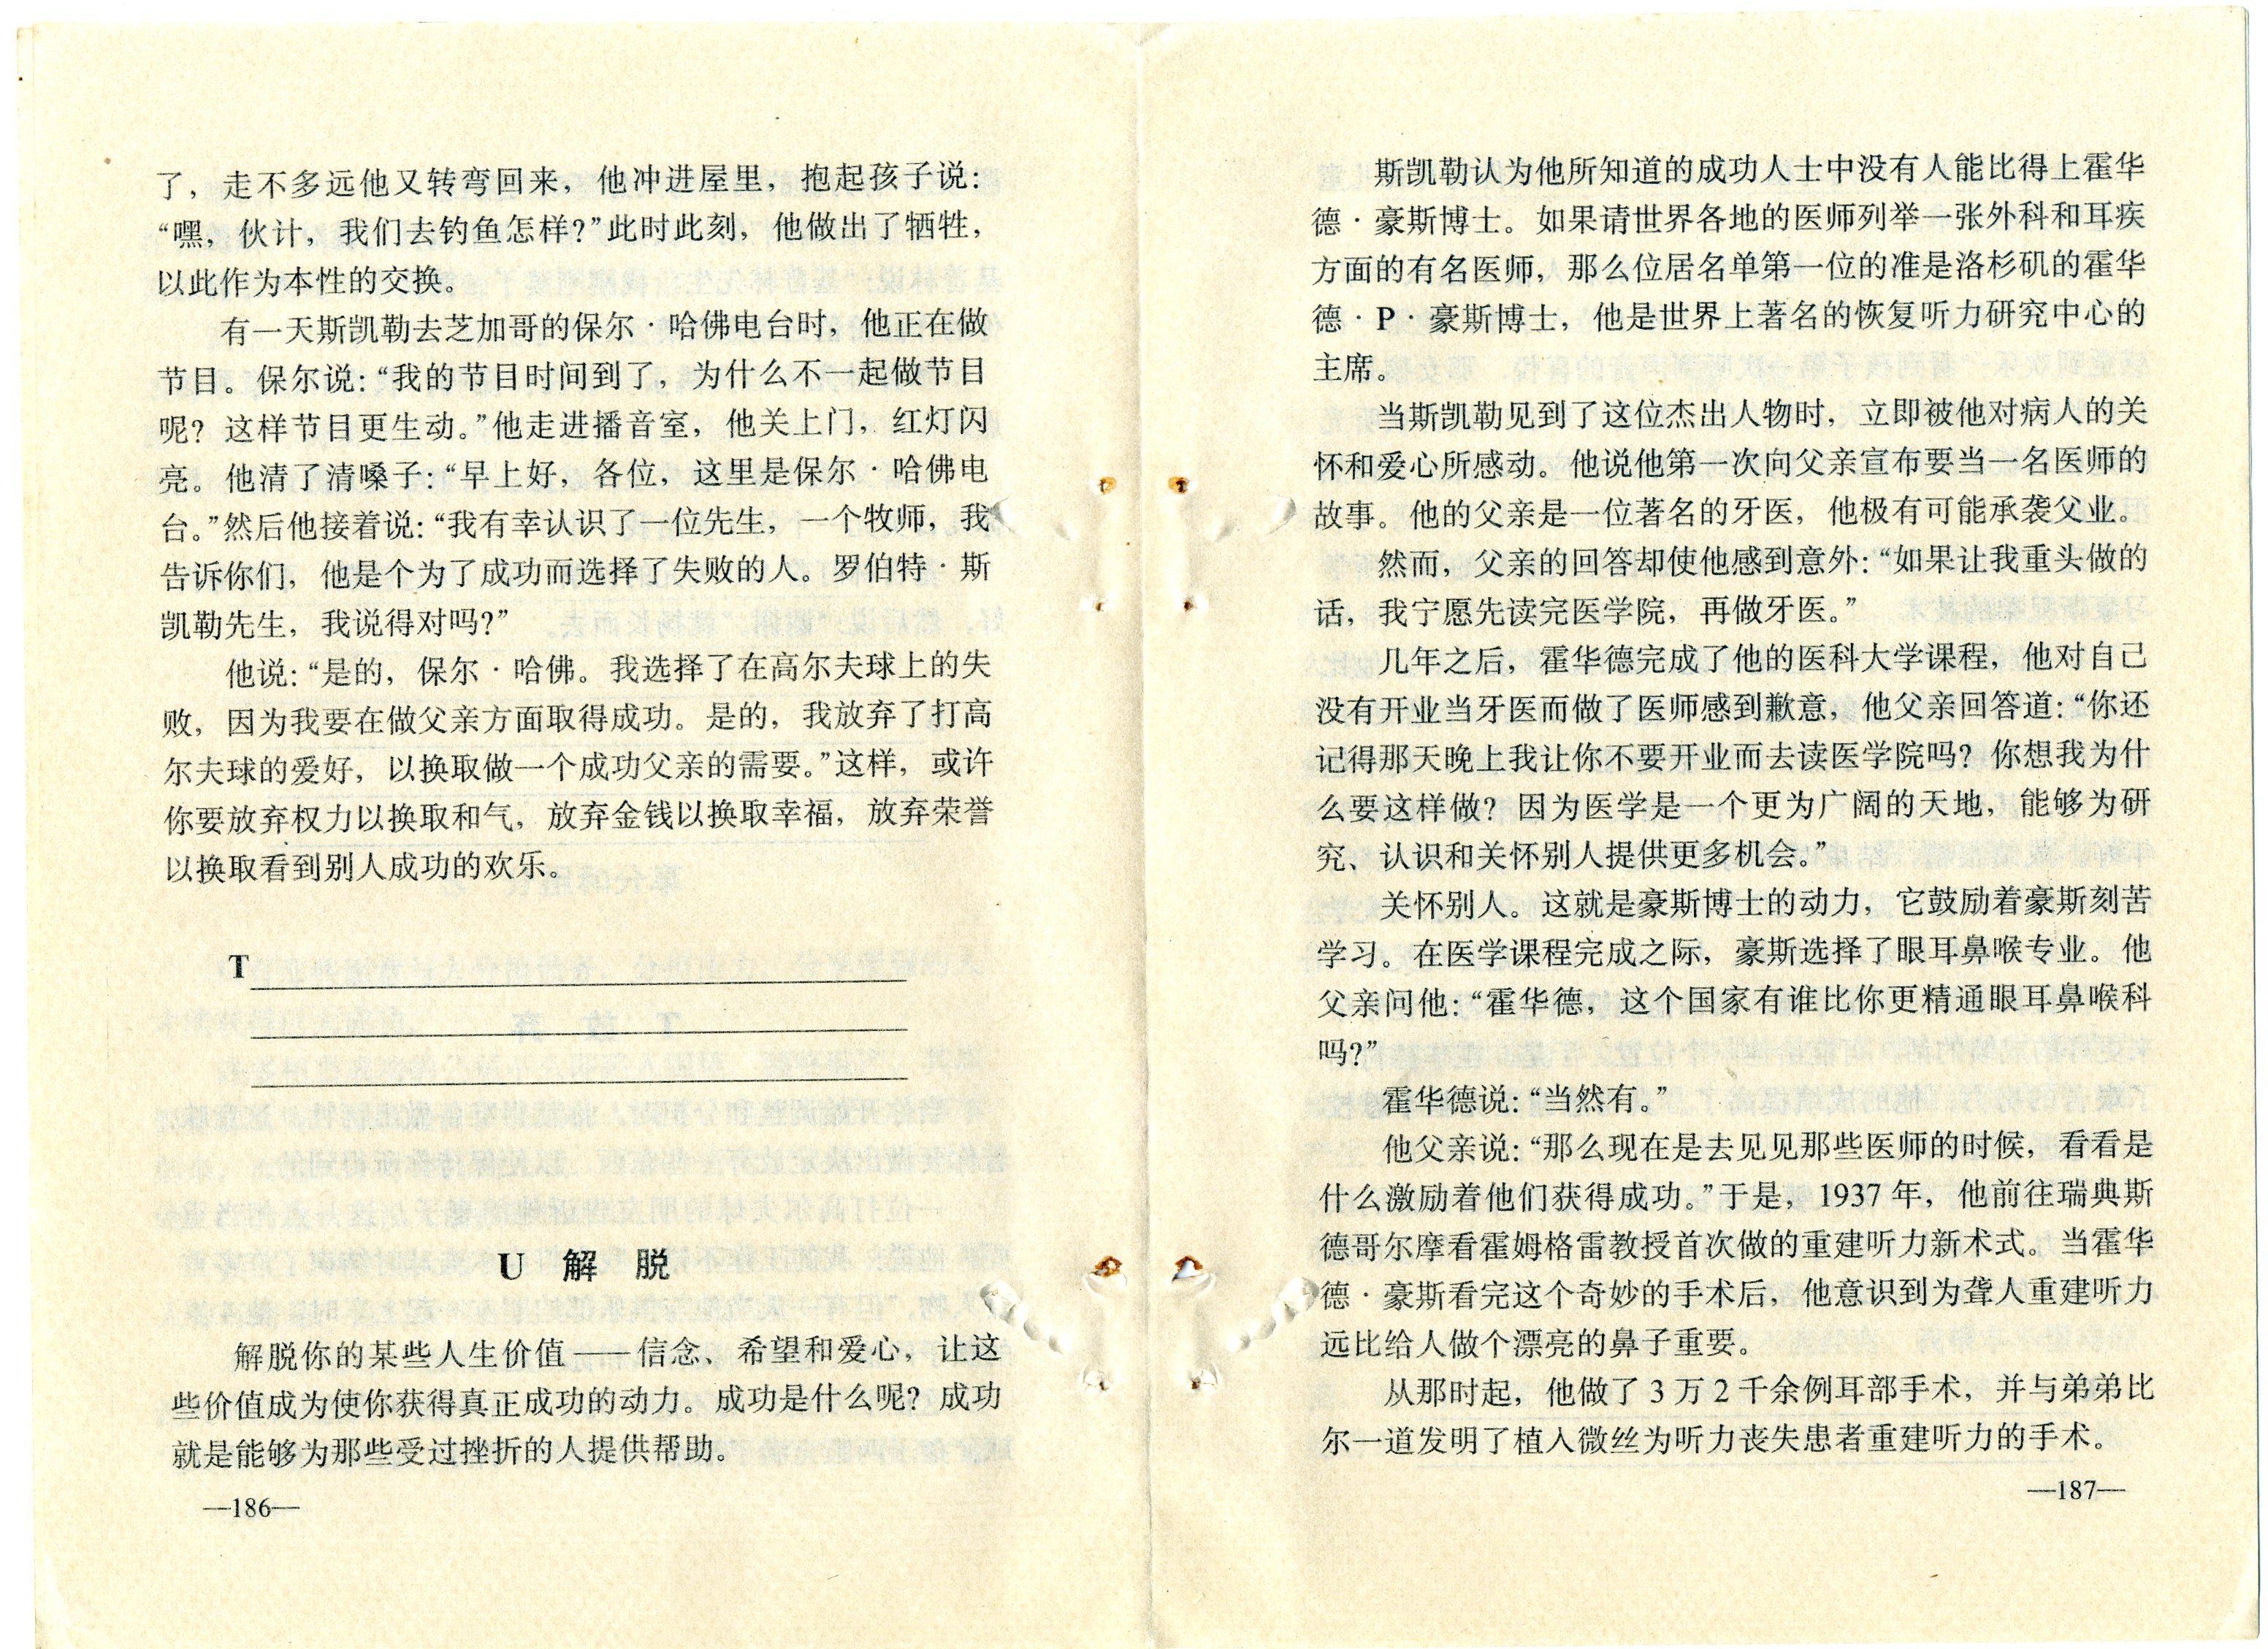 了，走不多远他又转弯回来，他冲进屋里，抱起孩子说：
“嘿，伙计，我们去钓鱼怎样？”此时此刻，他做出了牺牲，
以此作为本性的交换。
有一天斯凯勒去芝加哥的保尔·哈佛电台时，他正在做
节目。保尔说：“我的节目时间到了，为什么不一起做节目
呢？这样节目更生动。”他走进播音室，他关上门，红灯闪
亮。他清了清嗓子：“早上好，各位，这里是保尔·哈佛电
台。”然后他接着说：“我有幸认识了一位先生，一个牧师，我
告诉你们，他是个为了成功而选择了失败的人。罗伯特·斯
凯勒先生，我说得对吗？”
他说：“是的，保尔·哈佛。我选择了在高尔夫球上的失
败，因为我要在做父亲方面取得成功。是的，我放弃了打高
尔夫球的爱好，以换取做一个成功父亲的需要。”这样，或许
你要放弃权力以换取和气，放弃金钱以换取幸福，放弃荣誉
以换取看到别人成功的欢乐。
T
U 解 脱
解脱你的某些人生价值——信念、希望和爱心，让这
些价值成为使你获得真正成功的动力。成功是什么呢？成功
就是能够为那些受过挫折的人提供帮助。
—186—
斯凯勒认为他所知道的成功人士中没有人能比得上霍华
德·豪斯博士。如果请世界各地的医师列举一张外科和耳疾
方面的有名医师，那么位居名单第一位的准是洛杉矶的霍华
德·P·豪斯博士，他是世界上著名的恢复听力研究中心的
主席。
当斯凯勒见到了这位杰出人物时，立即被他对病人的关
怀和爱心所感动。他说他第一次向父亲宣布要当一名医师的
故事。他的父亲是一位著名的牙医，他极有可能承袭父业。
然而，父亲的回答却使他感到意外：“如果让我重头做的
话，我宁愿先读完医学院，再做牙医。”
几年之后，霍华德完成了他的医科大学课程，他对自己
没有开业当牙医而做了医师感到歉意，他父亲回答道：“你还
记得那天晚上我让你不要开业而去读医学院吗？你想我为什
么要这样做？因为医学是一个更为广阔的天地，能够为研
究、认识和关怀别人提供更多机会。”
关怀别人。这就是豪斯博士的动力，它鼓励着豪斯刻苦
学习。在医学课程完成之际，豪斯选择了眼耳鼻喉专业。他
父亲问他：“霍华德，这个国家有谁比你更精通眼耳鼻喉科
吗？”
霍华德说：“当然有。”
他父亲说：“那么现在是去见见那些医师的时候，看看是
什么激励着他们获得成功。”于是，1937 年，他前往瑞典斯
德哥尔摩看霍姆格雷教授首次做的重建听力新术式。当霍华
德·豪斯看完这个奇妙的手术后，他意识到为聋人重建听力
远比给人做个漂亮的鼻子重要。
从那时起，他做了 3 万 2 千余例耳部手术，并与弟弟比
尔一道发明了植入微丝为听力丧失患者重建听力的手术。
—187—